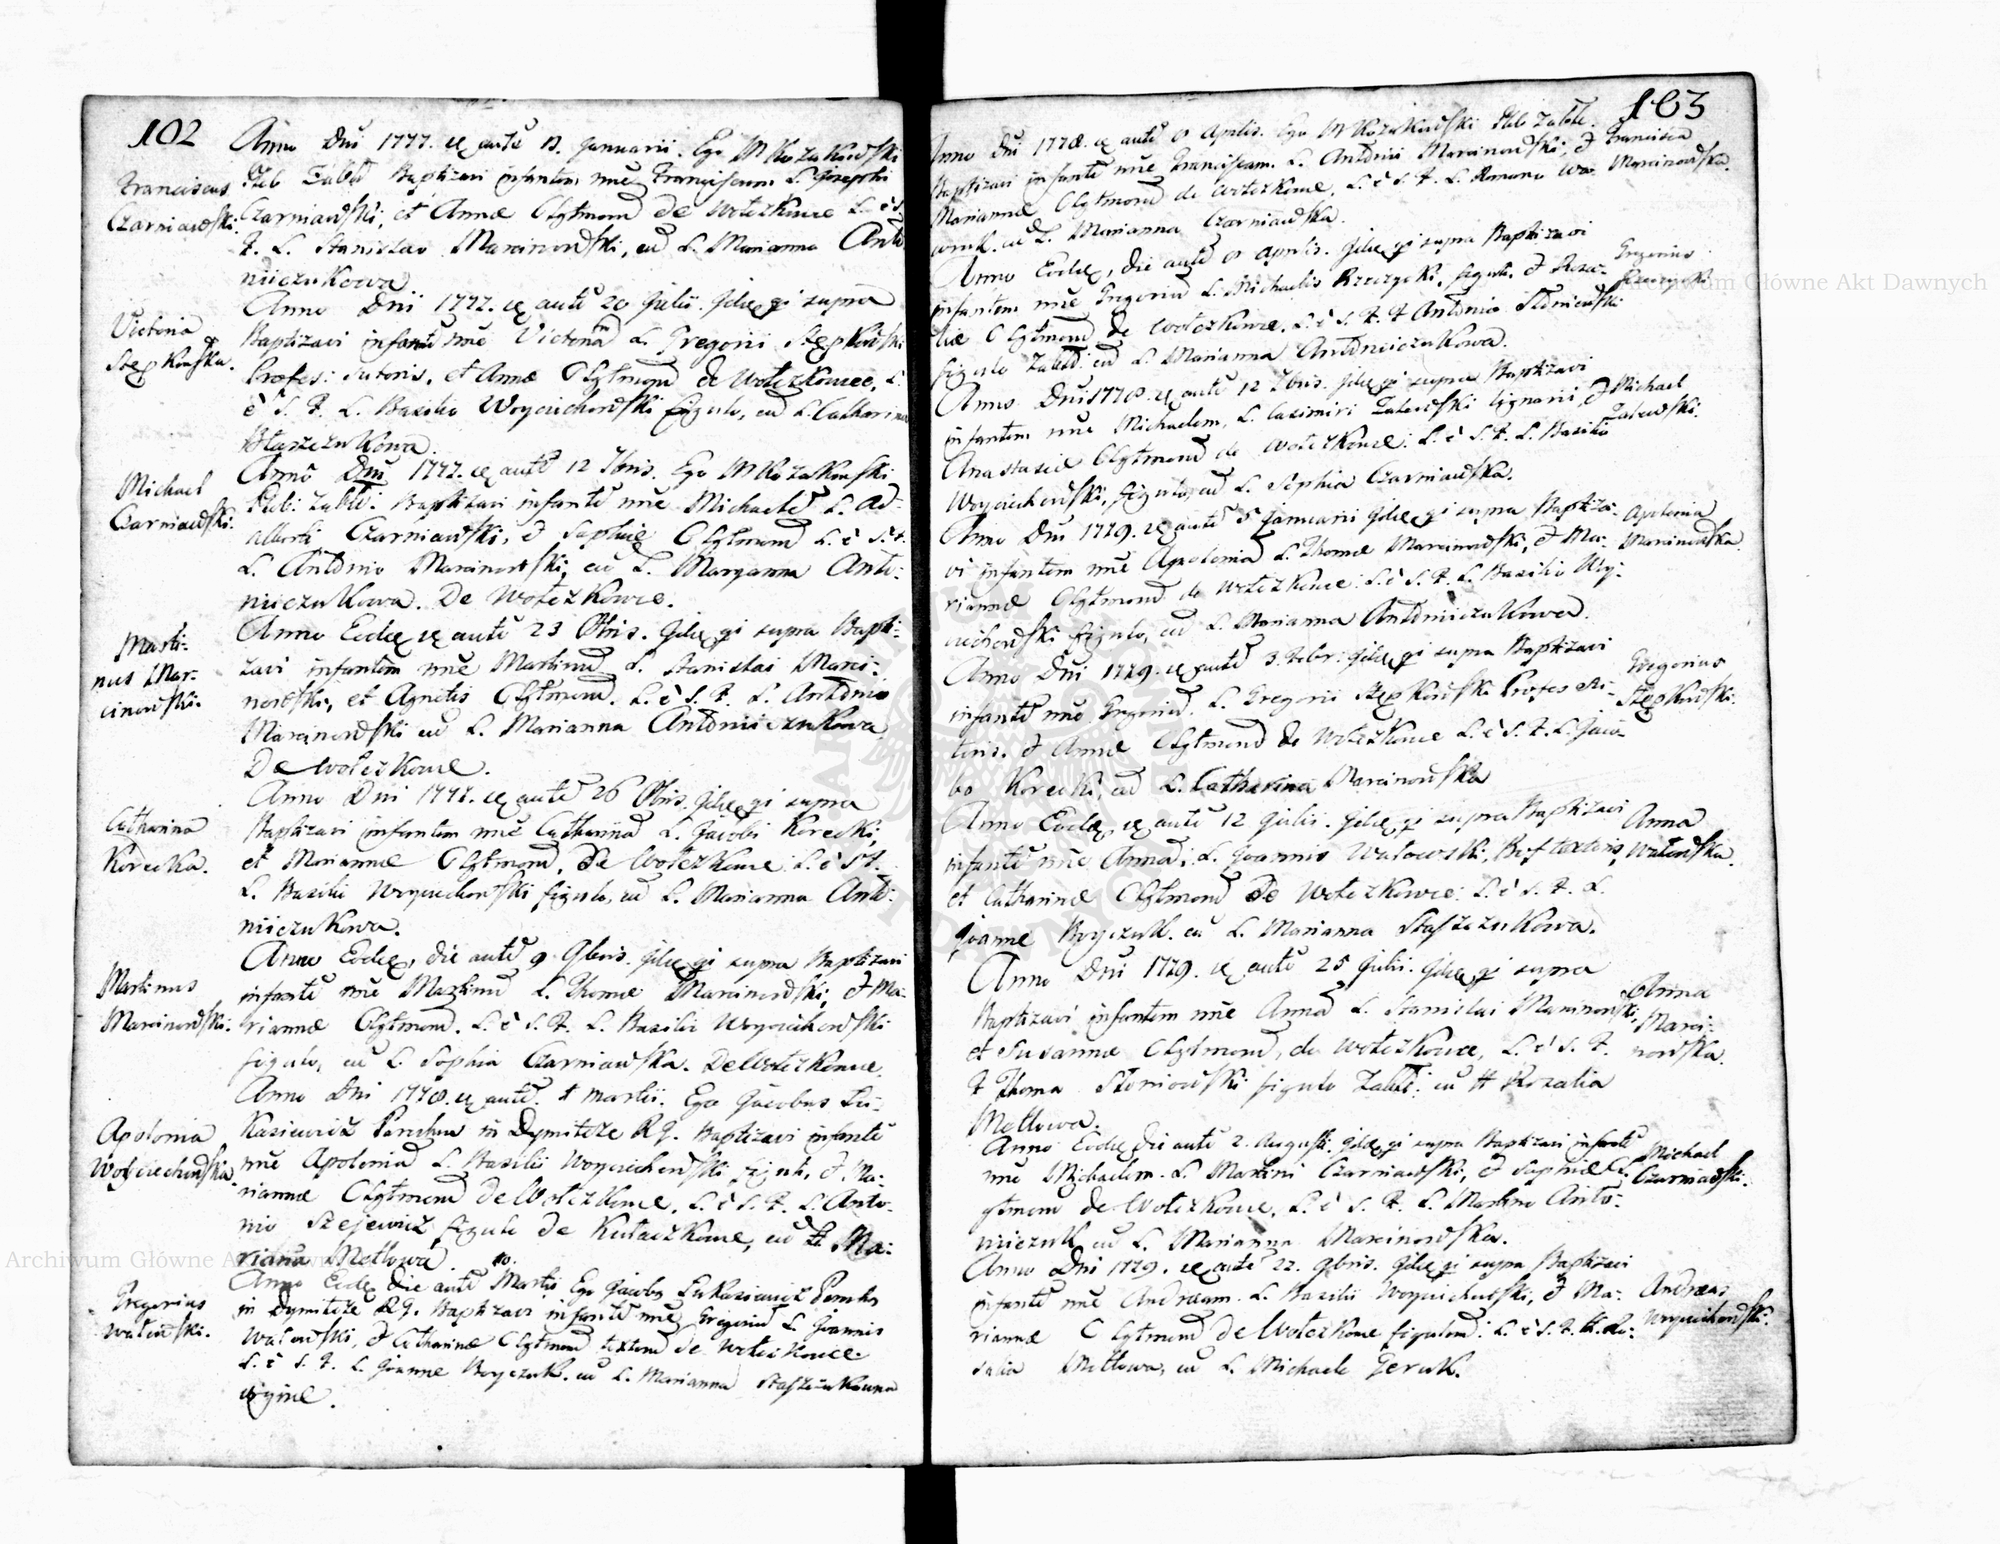 102
Franciscus
Czarniawski.
Anno Dni 1777. autē 13. Januarii. Ego M Kozakowski
Baptizavi infantem nūe Franciscum L. Josephi
Czarniawski, et Annæ Clgtmorū de Wołczkowce L. è S.
F. L. Stanislao Marcinowski, cū L. Marianna Anto
niiczukowa.
Victoria
Stępkowska.
Anno Dnī 1777. autē 20 Julii. Idē qi supra
Baptizavi infantē nūe Victoriā L. Gregorii Stępkowski
Profes: sutoris, et Annæ Clgtmorū de Wołczkowce, L.
è S. F. L. Basilio Woyciechowski figulo, cū L. Catharina
Staszczukowa.
Michael
Czarniawski.
Anno Dnī 1777. autē 12 7bris. Ego M Kozakowski
Baptizavi infantē nūe Michaelē L. Ad-
alberti Czarniawski, et Sophiæ Clgtmorū L. è S. F.
L. Antonio Marcinowski, cū L. Maryanna Anto-
niiczukowa. De Wołczkowce.
Marti-
nus Mar-
cinowski.
Anno Eodē autē 23 8bris. Idē qi supra Bapti-
zavi infantem nūe Martinū L. Stanislai Marci-
nowski, et Agnetis Clgtmorū. L. è S. F. L. Antonio
Marcinowski cū L. Marianna Antoniiczukowa
De Wołczkowce.
Catharina
Korecka.
Anno Dni 1777. autē 26 8bris. Idē qi supra
Baptizavi infantem nūe Catharinā L. Jacobi Korecki,
et Mariannæ Clgtmorū, de Wołczkowce L. è S F.
L. Basilii Woyciechowski figulo, cū L. Marianna Anto-
niiczukowa.
Martinus
Marcinowski.
Anno Eodē, die autē 9 9bris. Idē qi supra Baptizavi
infantē nūe Martinū L. Thomæ Marcinowski, et Ma-
riannæ Clgtmorū. L. è S. F. L. Basilii Woyciechowski
figulo, cū L. Sophia Czarniawska. De Wołczkowce.
Apolonia
Woyciechowska
Anno Dni 1778. autē. 1 martii. Ego Jacobus Łu-
kasiewicz Parochus in Dymitrze RG. Baptizavi infantē
nūe Apoloniā L. Basilii Woyciechowski figuli, et Ma-
riannæ Clgtmorū de Wołczkowce, L. è S. F. L. Anto-
nio Szejewicz figulo de Kułaczkowce, cū Ma-
rianna Metlowa.
Gregorius
Watowski.
10.
Anno Eodē die autē Martii Ego Jacobus Łukasiewicz Parochus
in Dymitrze RG. Baptizavi infantē nūe Gregoriū L. Joannis
Watowski, et Catharinæ Clgtmorū textorū de Wołczkowce.
L. è S. F. L. Joanne Boyczuk. cū L. Marianna Staszczukowna
virgine.
103
Francisca
Marcinowska.
Anno Dni 1778. autē 8 Aprilis. Ego M Kozakowski
Baptizavi infantē nūe Franciscam. L. Antonii Marcinowski, et
Mariannæ Clgtmorū de Wołczkowce. L. è S. F. L. Romano
cū L. Marianna Czarniawska.
Gregorius
Rzeczycki
Anno Eodē, die autē 8 Aprilis. Idē qi supra Baptizavi
infantem nūe Gregoriū L. Michaelis Rzeczycki, figuli, et Rosa-
liæ Clgtmorū de Wołczkowce. L. è S. F. F Antonio Słoniowski
figulo cū L. Marianna Antoniiczukowa.
Michael
Zalewski.
Anno Dni 1778. autē 12 7bris. Idē qi supra Baptizavi
infantem nūe Michaelem, L. Casimiri Zalewski lignarii, et
Anastasiæ Clgtmorū de Wołczkowce: L. è S. F. L. Basilio
Woyciechowski, figulo, cū L. Sophia Czarniawska.
Apolonia
Marcinowska
Anno Dni 1779. autē 5 Januarii Idē qi supra Baptiza-
vi infantem nūe Apoloniā L. Thomæ Marcinowski, et Ma-
riannæ Clgtmorū de Wołczkowce: L. è S. F. L. Basilio Woy-
ciechowski figulo, cū L. Marianna Antoniiczukowa.
Gregorius
Stępkowski.
Anno Dni 1779. autē 3. Febr: Idē qi supra Baptizavi
infantē nūe Gregoriū. L. Gregorii Stępkowski Profes su-
toris. et Annæ Clgtmorū de Wołczkowce L. è S. F. L. Jaco-
bo Korecki, cū L. Catharina Marcinowska
Anna
Watowska.
Anno Eodē autē 12 Julii. Idē qi supra Baptizavi
infantē nūe Annā. L. Joannis Watowski, Prof textoris,
et Catharinæ Clgtmorū de Wołczkowce: L. è S. F. L.
Joanne Boyczuk. cū L. Marianna Staszczukowa.
Anna
Marci-
nowska.
Anno Dni 1779. autē 25 Julii. Idē qi supra
Baptizavi infantem nūe Annā L. Stanislai Marcinowski,
et Susannæ Clgtmorū, de Wołczkowce, L. è S. F.
F Thoma Słoniowski figulo cū Rozalia
Metlowa.
Michael
Czarniawski.
Anno Eodē die autē 2. Augusti. Idē qi supra Baptizavi infantē
nūe Michaelem. L. Martini Czarniawski, et Sophiæ Cl
gtmorū de Wołczkowce, L. è S. F. L. Martino Anto-
niiczuk cū L. Marianna Marcinowska.
Andreas
Woyciechowski.
Anno Dni 1779. autē 22. 9bris. Idē qi supra Baptizavi
infantē nūe Andream. L. Basilii Woyciechowski, et Ma-
riannæ Clgtmorū de Wołczkowce figulorū: L. è S. F. Ro-
salia Metlowa, cū L. Michaele Geruk.
Archiwum Główne Akt Dawnych